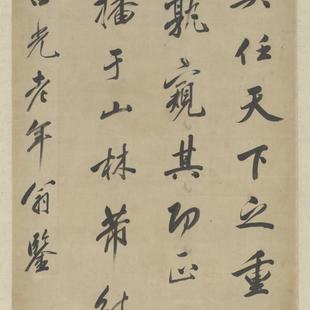 任天下之重
孰窺其功正
播于山林芾
光老年翁鑒